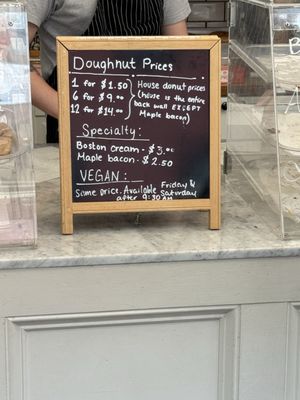 Doughnut Prices
1 for $1.50
6 for $9.00
12 for $14.00
House donut prices
(House is the entire
back wall EXCEPT
Maple bacon)
Specialty:
Boston cream - $3.00
Maple bacon - $2.50
VEGAN:
Same price. Available Friday &
after 9:30 AM Saturday